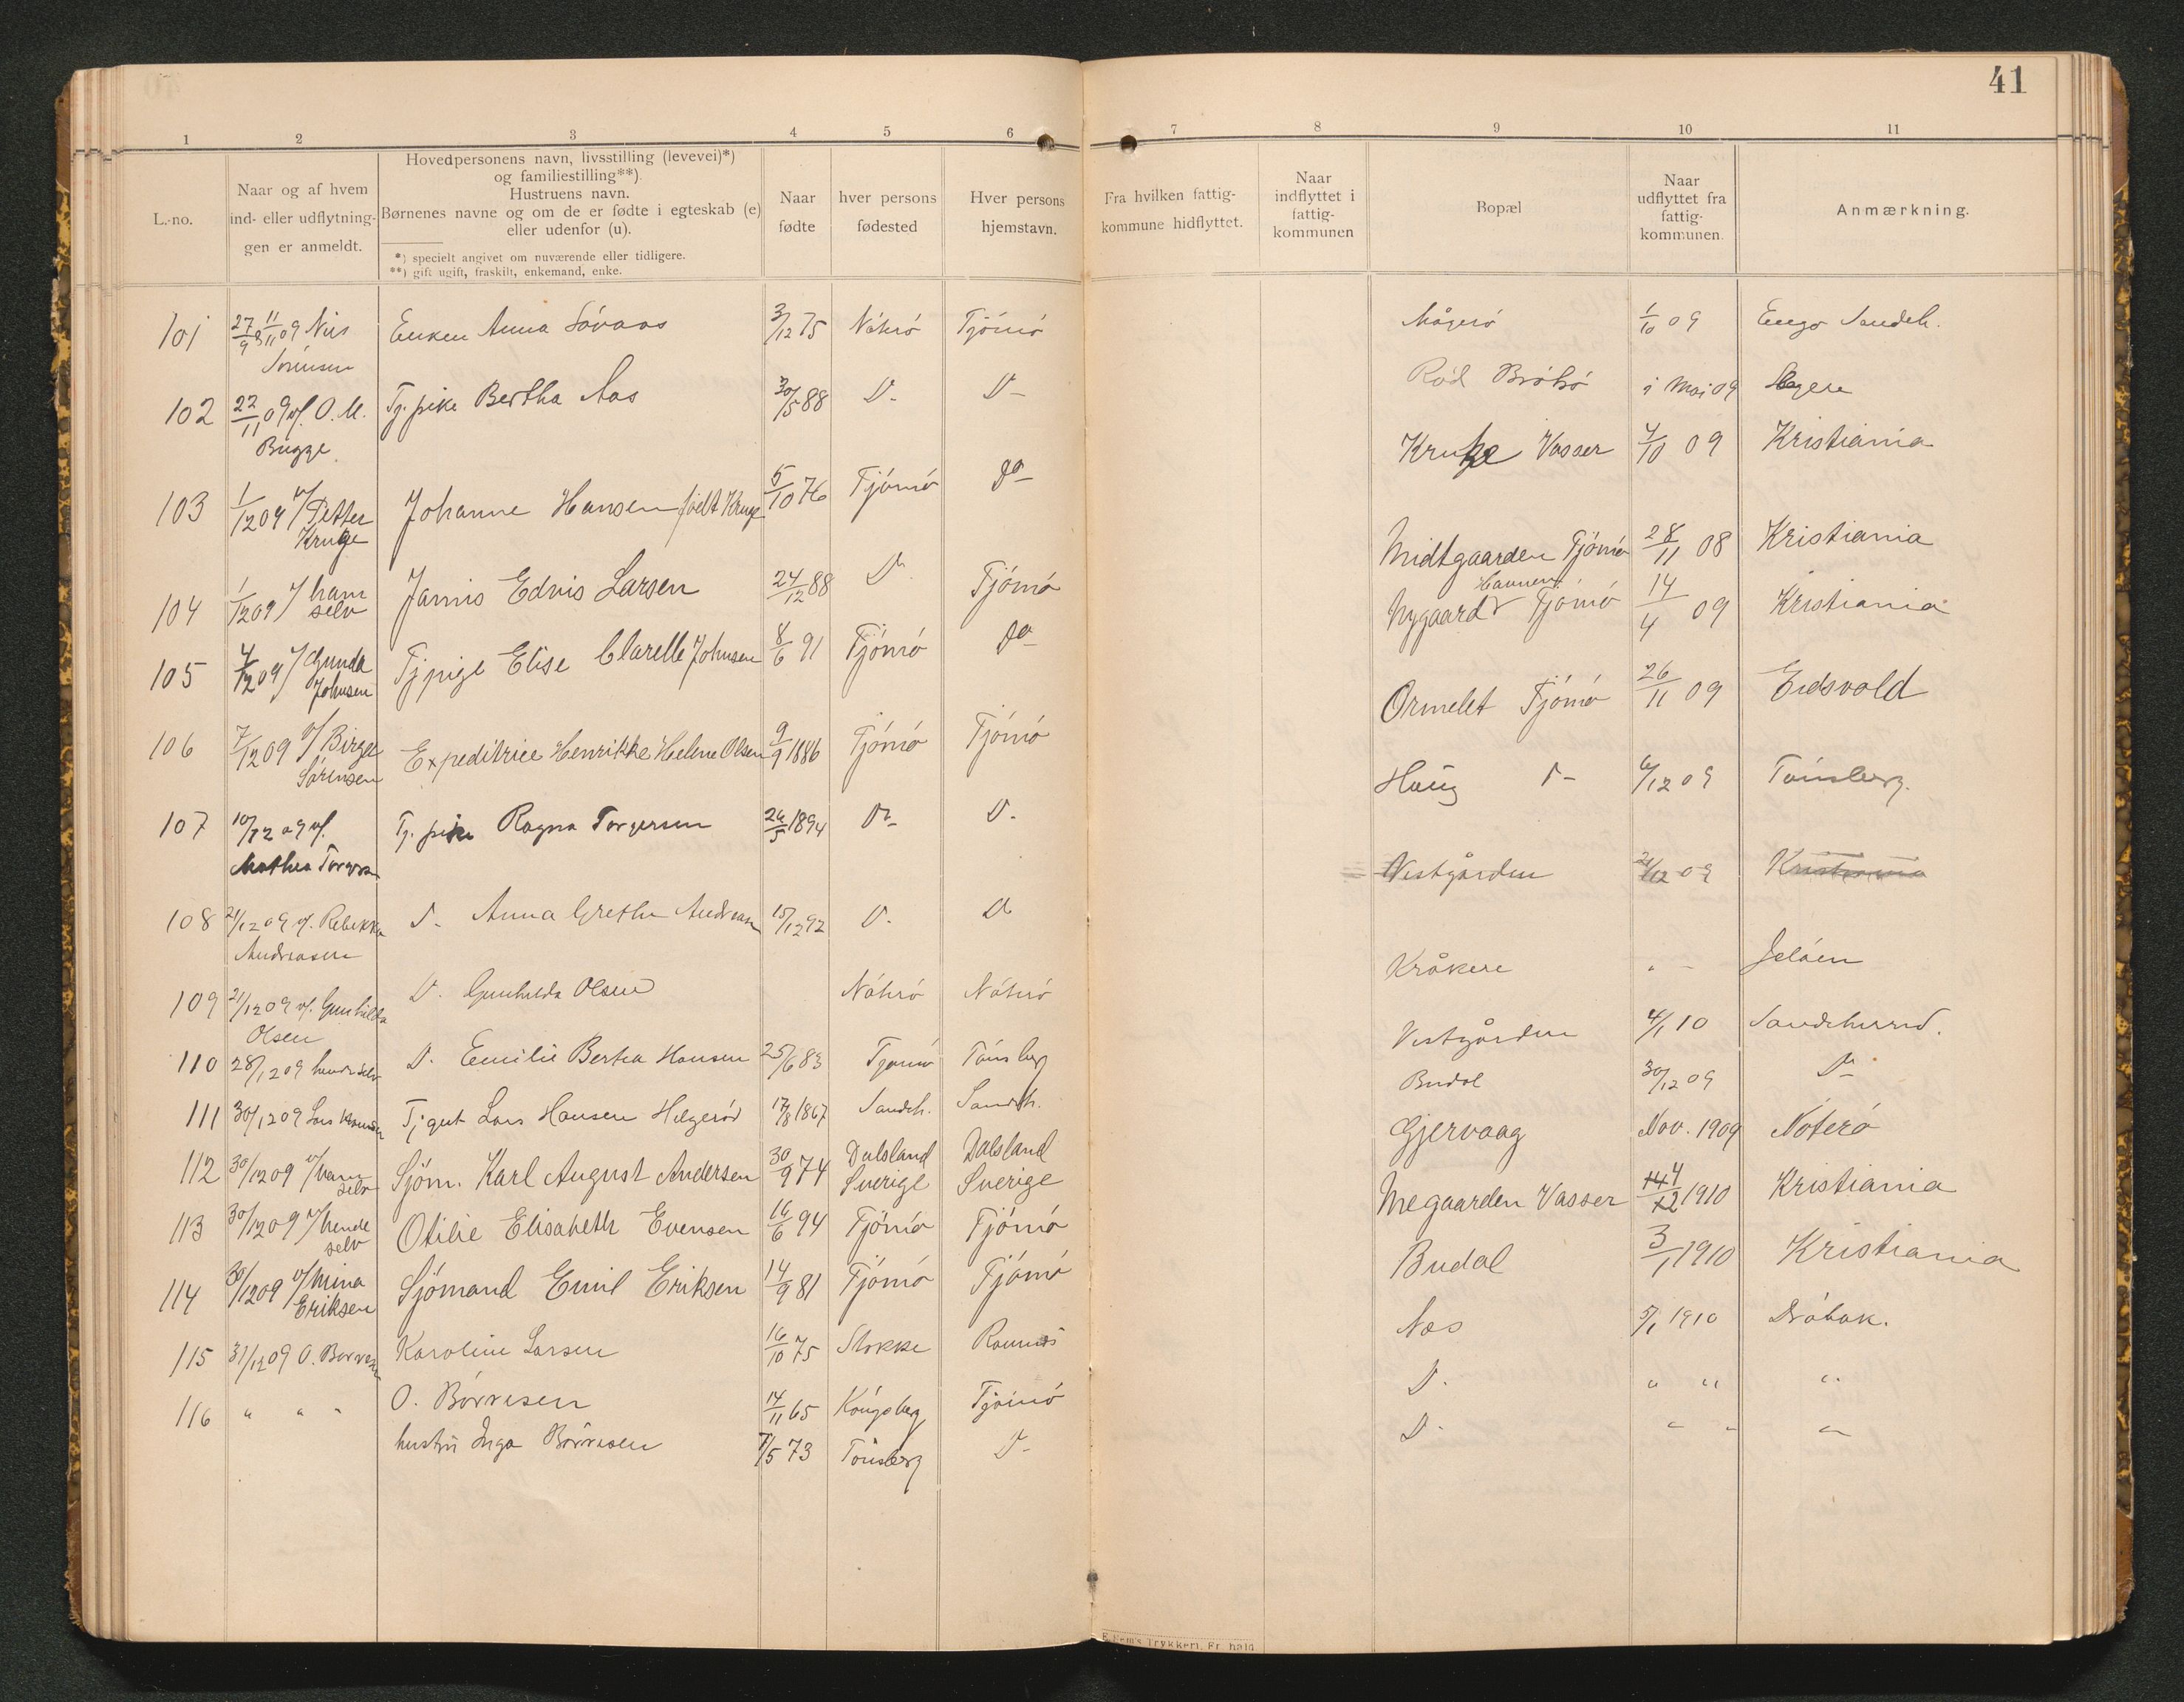 41
1 2 3 4 5 6 7 8 9 10 11
L.-no.
Naar og af hvem
ind- eller udflytnin-
gen er anmeldt.
Hovedpersonens navn, livsstilling (levevei)*)
og familiestilling**).
Hustruens navn.
Børnenes navne og om de er fødte i egteskab (e)
eller udenfor (u).
*) specielt angivet om nuværende eller tidligere.
**) gift ugift, fraskilt, enkemand, enke.
Naar
fødte
hver persons
fødested
Hver persons
hjemstavn.
Fra hvilken fattig-
kommune hidflyttet.
Naar
indflyttet i
fattig-
kommunen
Bopæl
Naar
udflyttet fra
fattig-
kommunen.
Anmærkning.
101 27/9 & 11/11 09 Nils Enken Anna 3/12 75 Nøtrø Tjømø Mågerø 1/10 09 Engo Sandeh.
Sørensen
102 22/11 09 v/. O. M. Tj. pike Bertha Aas 30/5 88 D- D- Rød Brøtsø i Mai 09
Bugge
103 1/12 09 v/ Petter Johanne Hansen født Kruge 5/10 76 Tjømø do- Kruge Vasser 4/10 09 Kristiania
Kruge
104 1/12 09 v/ ham Jamis Edvis Larsen 24/12 88 Do. Tjømø Midtgaarden Tjømø 28/11 08 Kristiania
selv
105 4/12 09 v/ Gunda Tjpige Elise Clarelle Johnsen 8/6 91 Tjømø do- Nygaard Havnen Tjømø 14/4 09 Kristiania
Johnsen
106 7/12 09 v/ Birge Expeditrice Henrikke Helene Olsen 9/9 1886 Tjømø Tjømø Ormelet Tjømø 26/11 09 Eidsvold
Sørensen
107 10/12 09 v/. Tj. pike Ragna Torgersen 26/5 1894 Do- D- Haug D- 6/12 09 Tønsberg.
Mathea
108 21/12 09 v/. Rebekka D- Anna Grethe Andreasen 15/12 92 D- Do Vestgården 21/12 09 Kristiania
Andreasen
109 21/12 09 v/. Gunhilda D. Gunhilda Olsen Nøtrø Nøtrø Kråkere " - Jeløen
Olsen
110 28/12 09 hende selv D. Emilie Berta Hansen 25/6 83 Tjømø Tønsberg Vestgården 4/1 10 Sandeherred.
111 30/12 09 Lars Hansen Tj gut Lars Hansen Helgerød 17/8 1867 Sandeh. Sandeh. Budal 30/12 09 Do
112 30/12 09 v/ ham Sjøm. Karl August Andersen 30/9 74 Dalsland Dalsland Gjervaag Nov. 1909 Nøterø
selv Sverige Sverige
113 30/12 09 v/ hende Otilie Elisabeth Evensen 16/6 94 Tjømø Tjømø Megaarden Vasser 1910 Kristiania
selv
114 30/12 09 v/ Mina Sjømand Emil Eriksen 14/9 81 Tjømø Tjømø Budal 3/1 1910 Kristiania
Eriksen
115 31/12 09 O. Karoline Larsen 16/10 75 Stokke Ramnes Næs 5/1 1910 Drøbak.
116 " " " O. Børresen 14/11 65 Kongsberg Tjømø D. " " "
hustru Inga Børresen 7/5 73 Tønsberg D- D. " " "